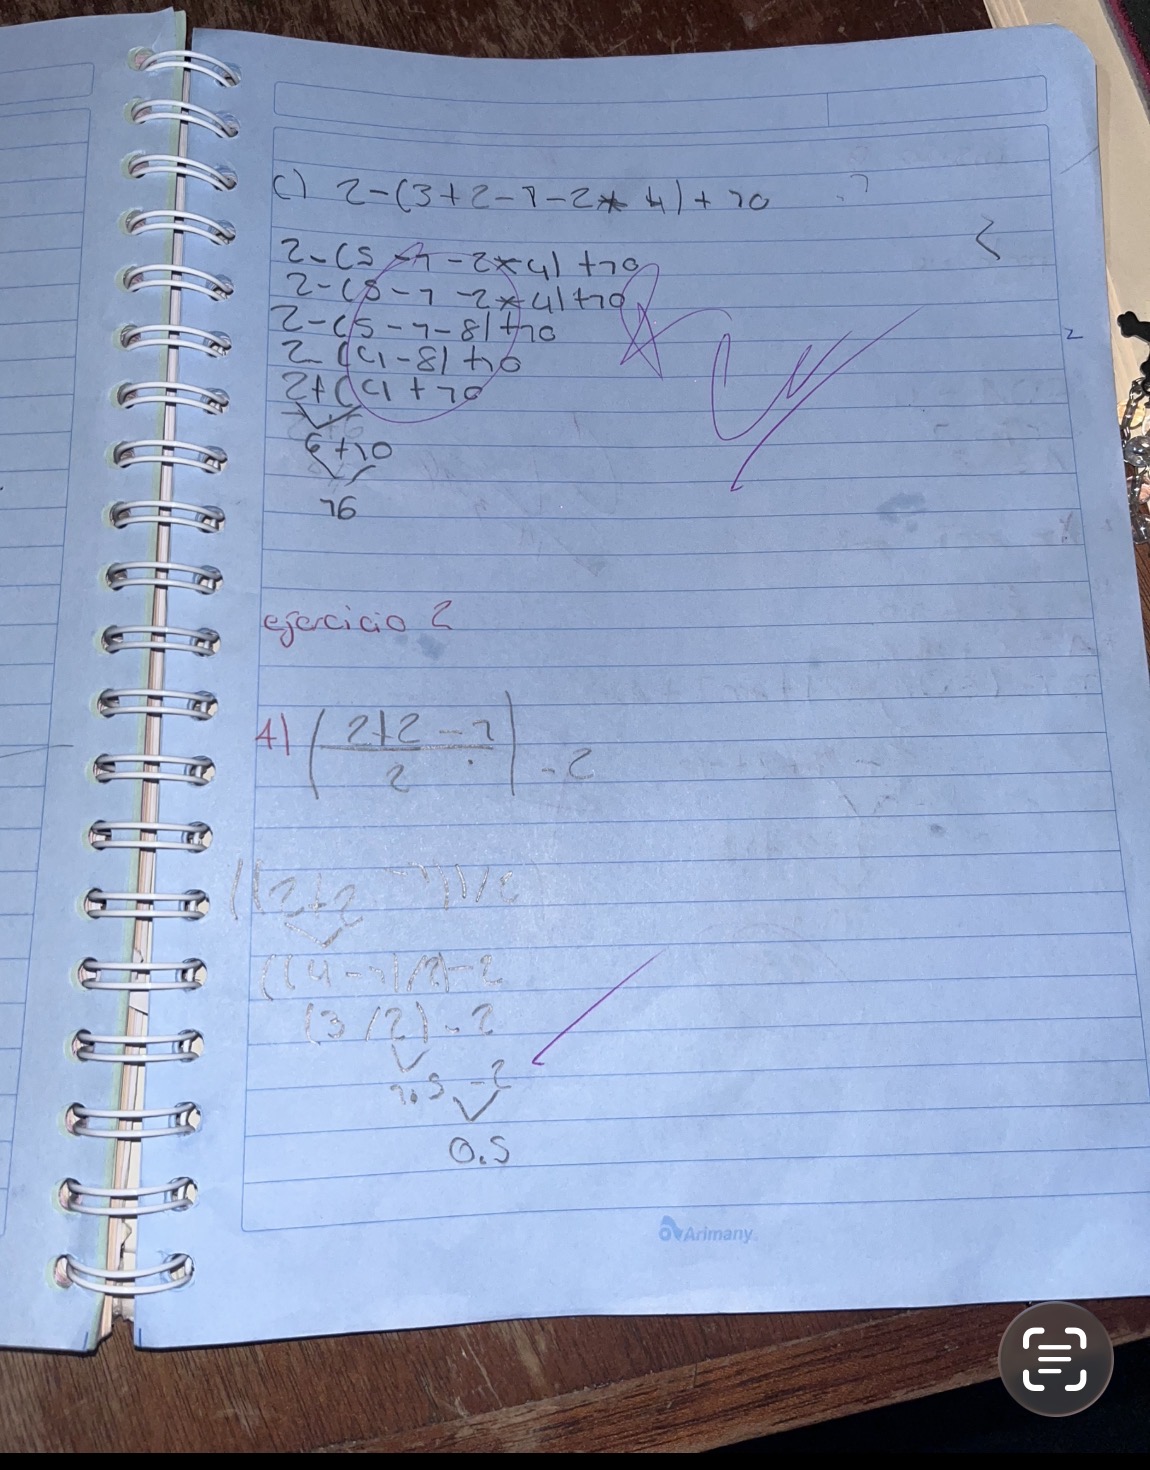 c) 2-(3+2-1-2*4)+10
2-(5-1-2*4)+10
2-(5-1-2*4)+10
2-(5-1-8)+10
2-(4-8)+10
2+(4+10
6+10
16
ejercicio 2
4) (2+2-1
2) -2
((2+2
((4-1)/2)-2
(3/2)-2
1.5-2
0.5
Arimany